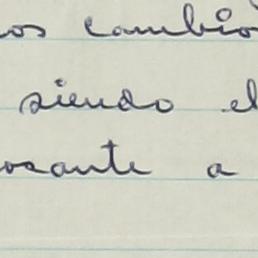 nos cambio
siendo el
osante a